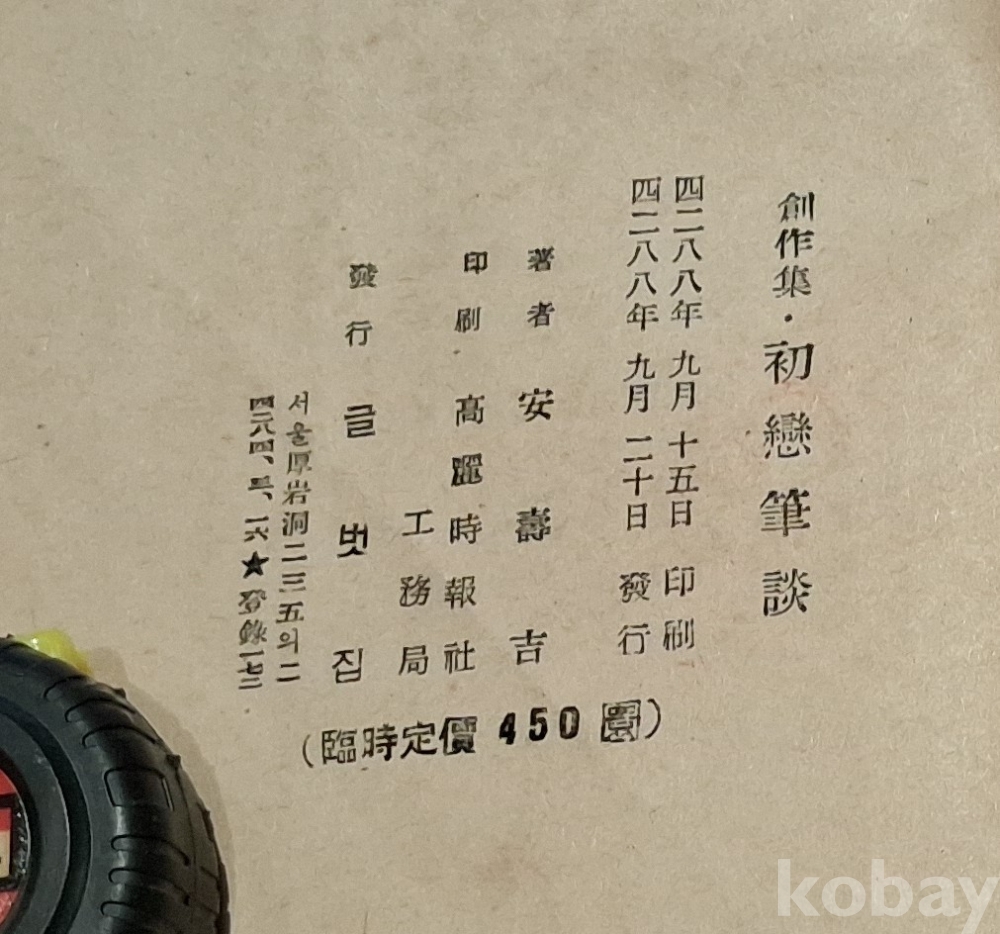 創作集·初戀筆談
四二八八年 九月 十五日 印刷
四二八八年 九月 二十日 發行
著者 安壽吉
印刷 高麗時報社
工務局
發行 글벗집
서울厚岩洞二三五의二
★登錄
(臨時定價 450 圜)
kobay